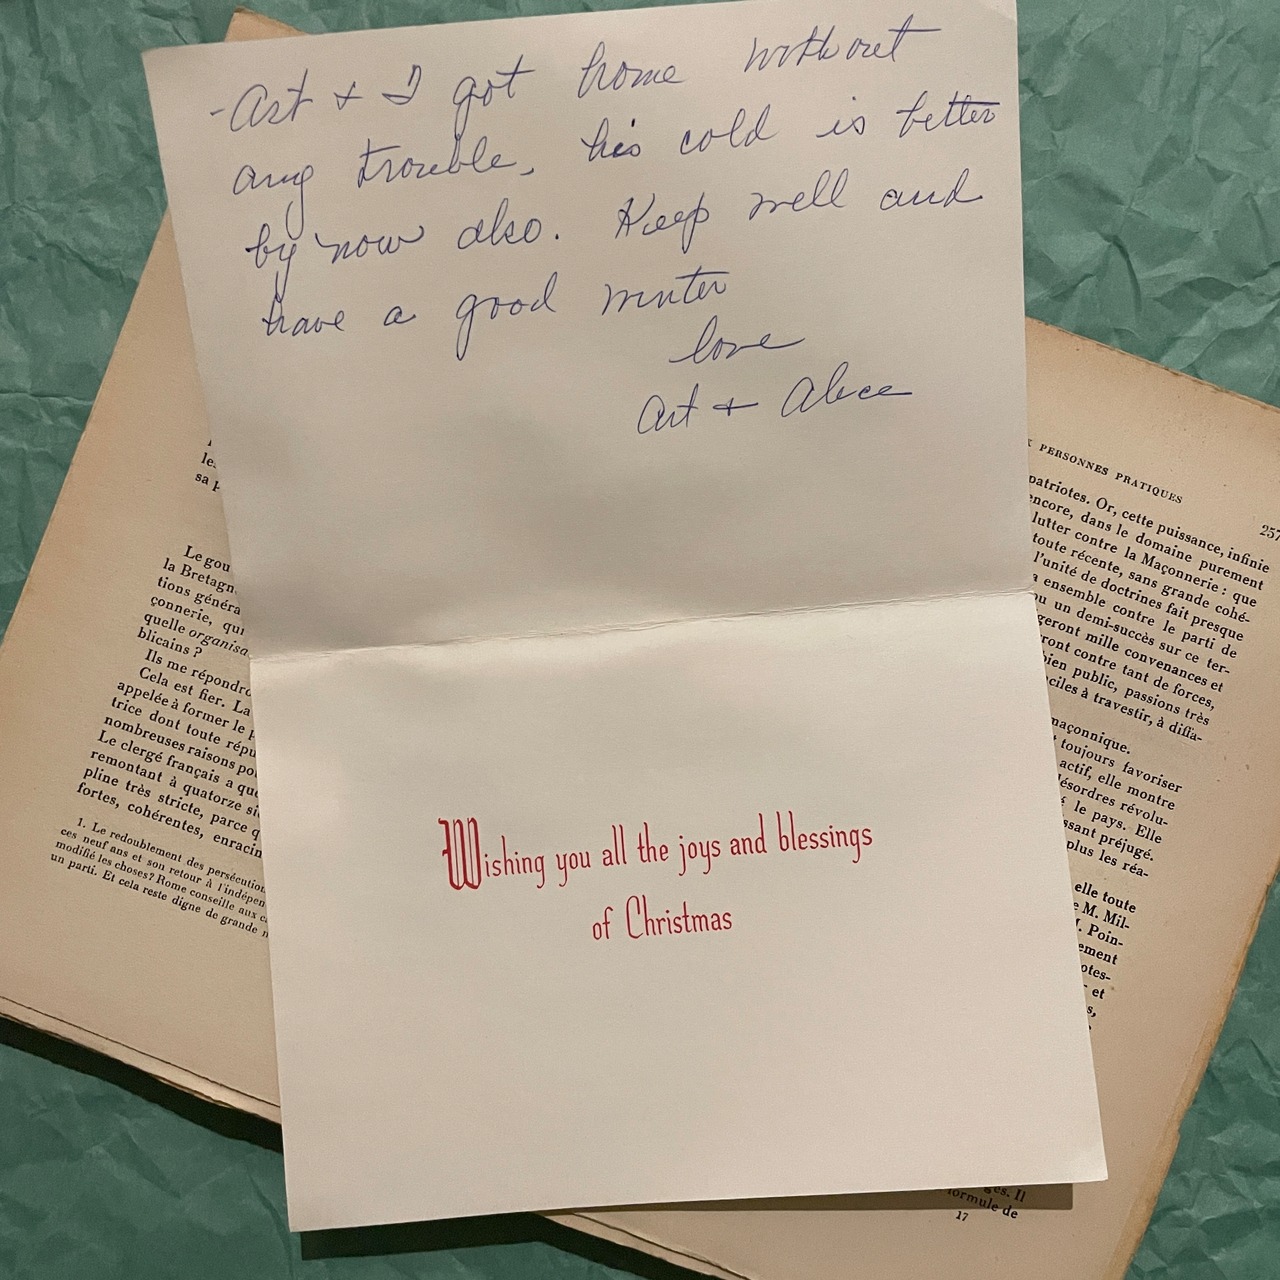 -Art + I got home without
any trouble, his cold is better
by now also. Keep well and
have a good winter
love
Art + Alice
Wishing you all the joys and blessings
of Christmas
les
sa p
Le gou
la Bretagn
tions généra
çonnerie, qui
quelle organisa
blicains ?
Ils me répondro
Cela est fier. La
appelée à former le p
trice dont toute répu
nombreuses raisons po
Le clergé français a que
remontant à quatorze si
pline très stricte, parce q
fortes, cohérentes, enracin
1. Le redoublement des persécution
ces neuf ans et son retour à l'indépen
modifié les choses? Rome conseille aux c
un parti. Et cela reste digne de grande
X PERSONNES PRATIQUES
257
patriotes. Or, cette puissance, infinie
encore, dans le domaine purement
lutter contre la Maçonnerie : que
toute récente, sans grande cohé-
l'unité de doctrines fait presque
ensemble contre le parti de
ou un demi-succès sur ce ter-
geront mille convenances et
ront contre tant de forces,
bien public, passions très
ciles à travestir, à diffa-
maçonnique.
toujours favoriser
actif, elle montre
désordres révolu-
le pays. Elle
ssant préjugé.
plus les réa-
elle toute
M. Mil-
Poin-
ement
otes-
et
ges. Il
formule de
17